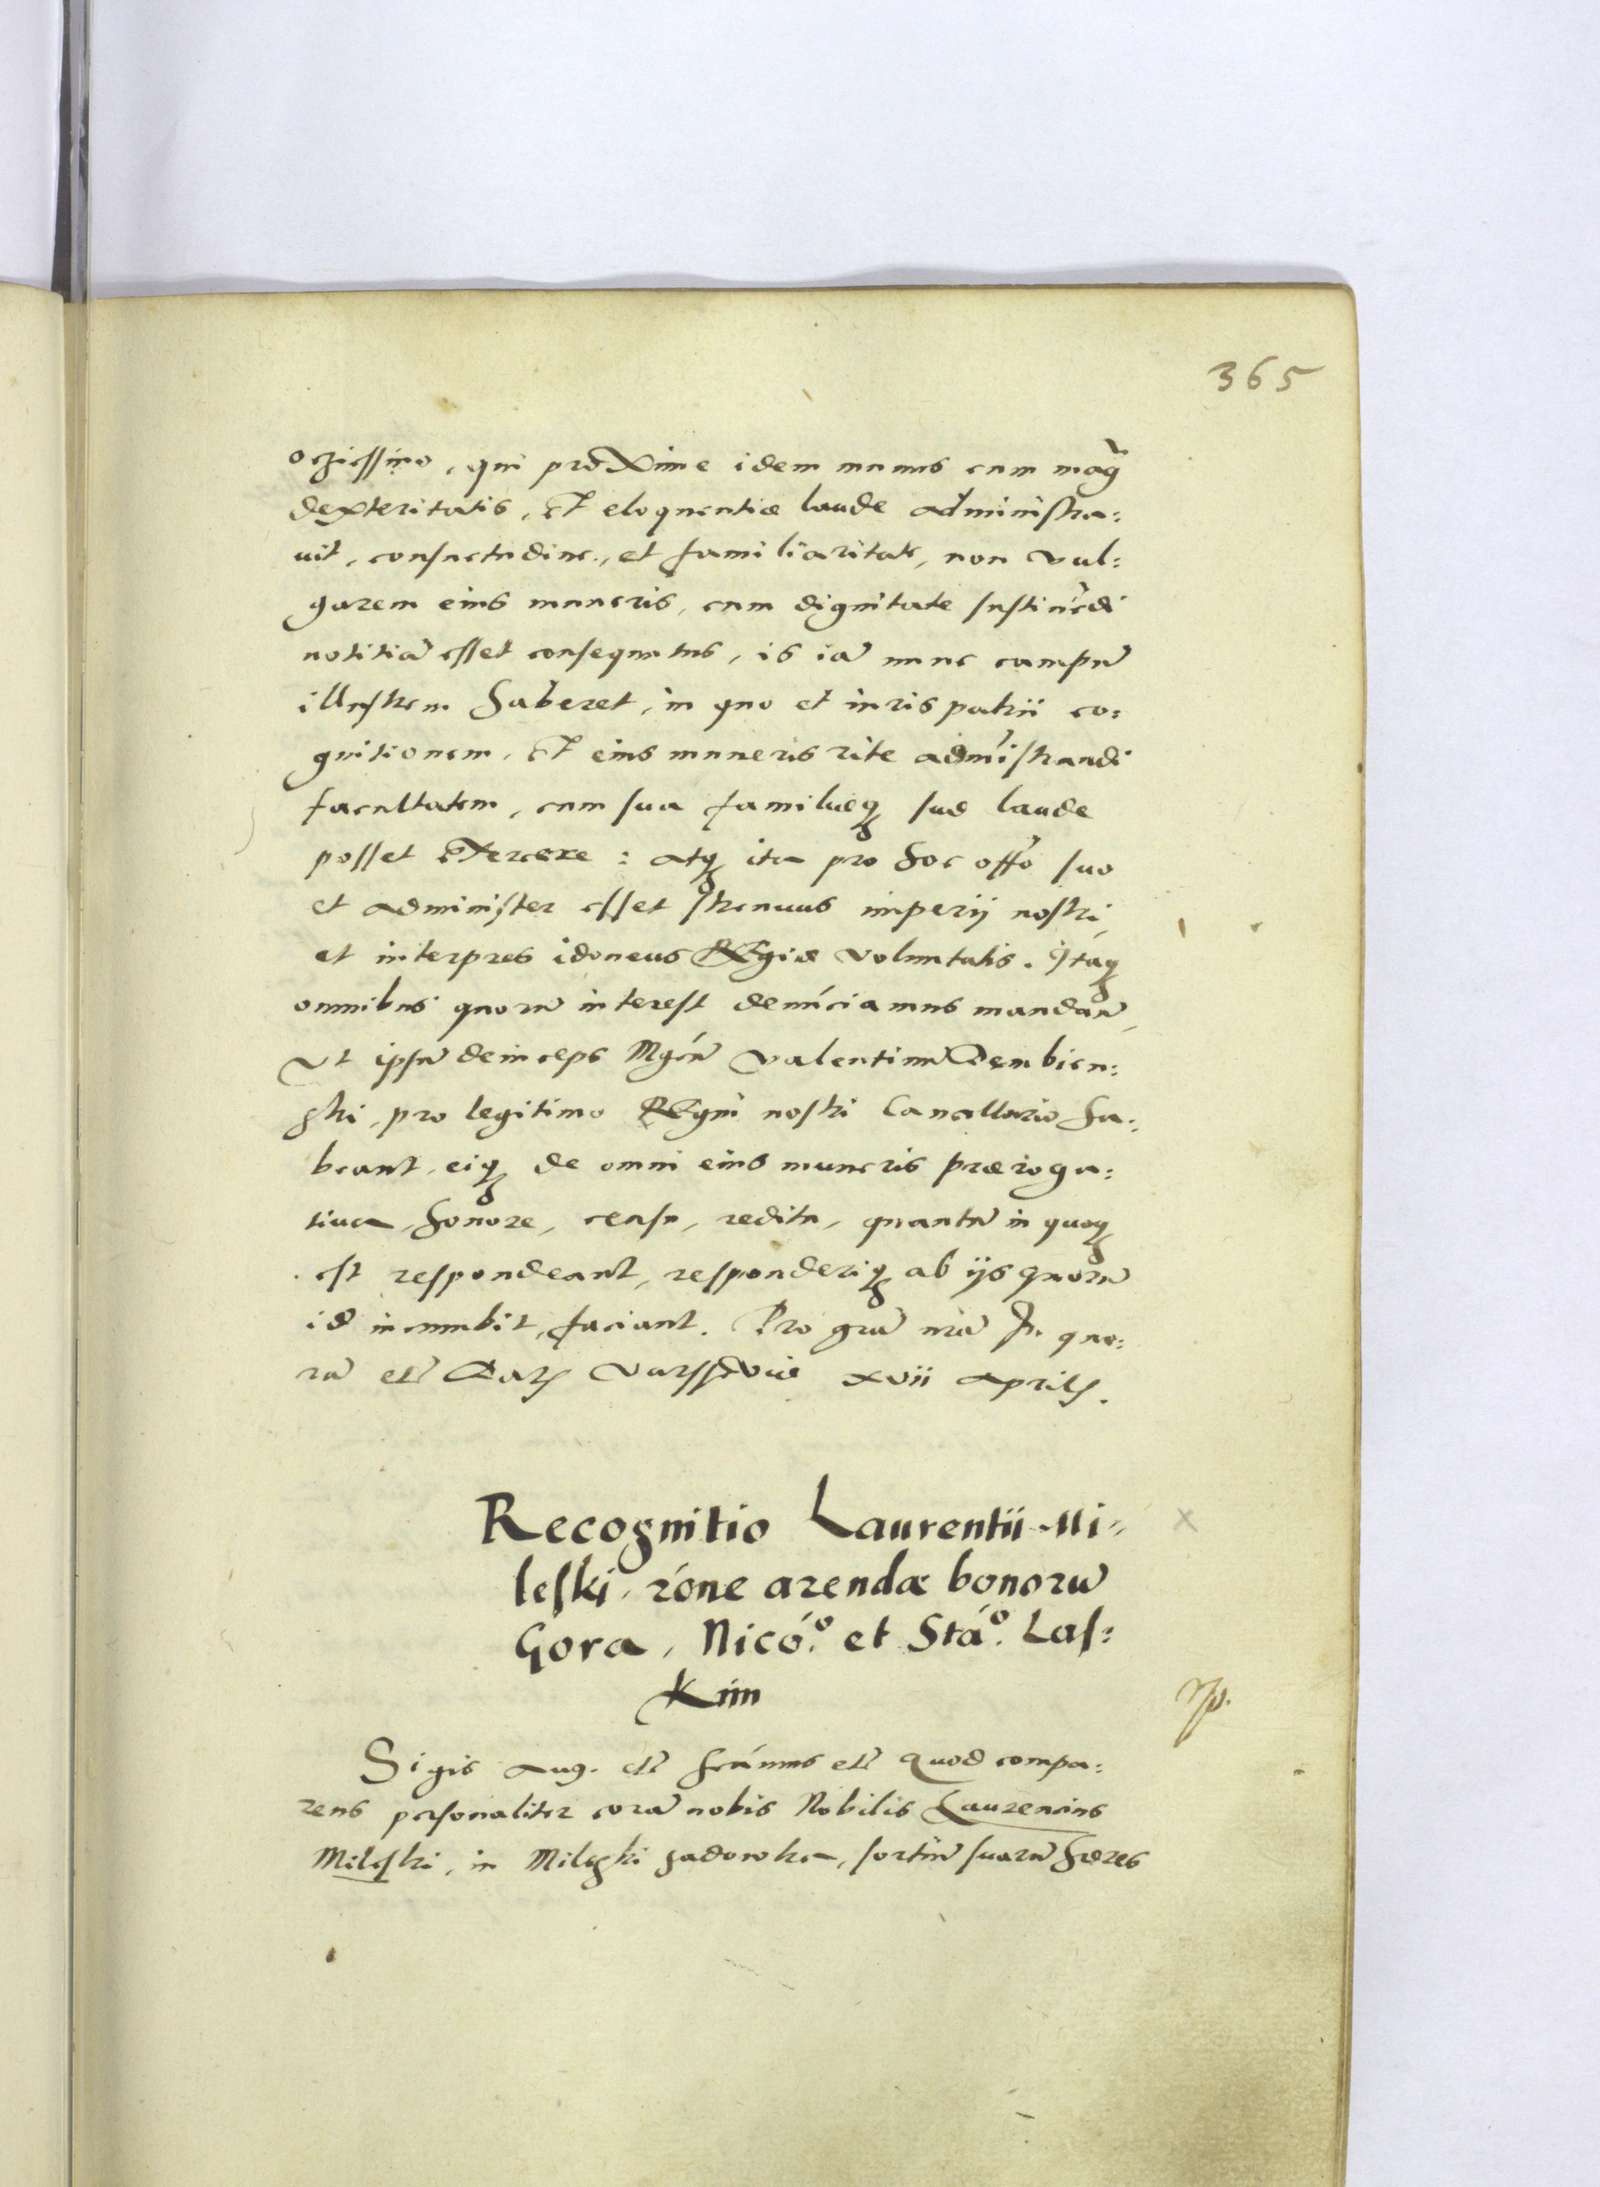 365
oczicssimo, qui proxime idem munus cum mag̃
dexteritatis, et eloquentiæ laude administra:
uit, consuetudine, et familiaritate, non vul:
garem eius muneris, cum dignitate sustinẽdi
notitiã esset consequutus, is iã nunc campũ
illustrem haberet, in quo et iuris patrii co:
gnitionem, et eius muneris rite admĩstrandi
facultatem, cum sua familiæq suæ laude
posset exercere : atq ita pro hoc offõ suo
et administer esset strenuus imperij nostri,
et interpres idoneus Regiæ voluntatis. Itaq
omnibus quorũ interest denũciamus mandañ,
Vt ipsũ deinceps Mgcũ Valentinũ Dembien:
ski, pro legitimo Regni nostri Cancellario ha:
beant, eiq de omni eius muneris præroga:
tiua, honore, censu, reditu, quantũ in quoq
est respondeant, responderiq ab ijs quorũ
id incumbit, faciant. Pro grã nrã In quo:
rũ etc̃ Dat Varssouiæ xvii Aprilis.
Recognitio Laurentii Mi=
leski, rõne arendæ bonorũ
Gora, Nicó.º et Stá.º Las:
kim
Sigis Aug. etc̃ Scimus etc̃ Quod compa:
rens personaliter corã nobis Nobilis Laurencius
Mileski, in Mileski gadomka, sortiũ suarũ hæres